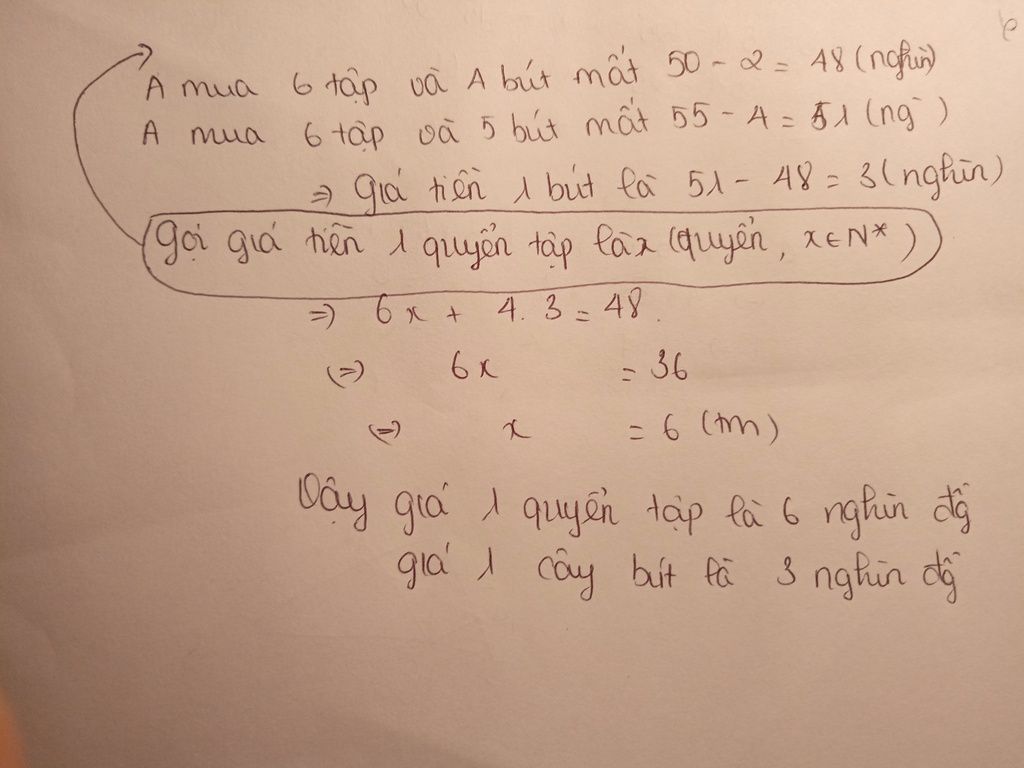 A mua 6 tập và 4 bút mất 50 - 2 = 48 (nghìn)
A mua 6 tập và 5 bút mất 55 - 4 = 51 (ng`)
=> Giá tiền 1 bút là 51 - 48 = 3 (nghìn)
Gọi giá tiền 1 quyển tập là x (quyển, x ∈ N*)
=> 6x + 4.3 = 48.
<=> 6x = 36
<=> x = 6 (tm)
Vậy giá 1 quyển tập là 6 nghìn đg
giá 1 cây bút là 3 nghìn đg